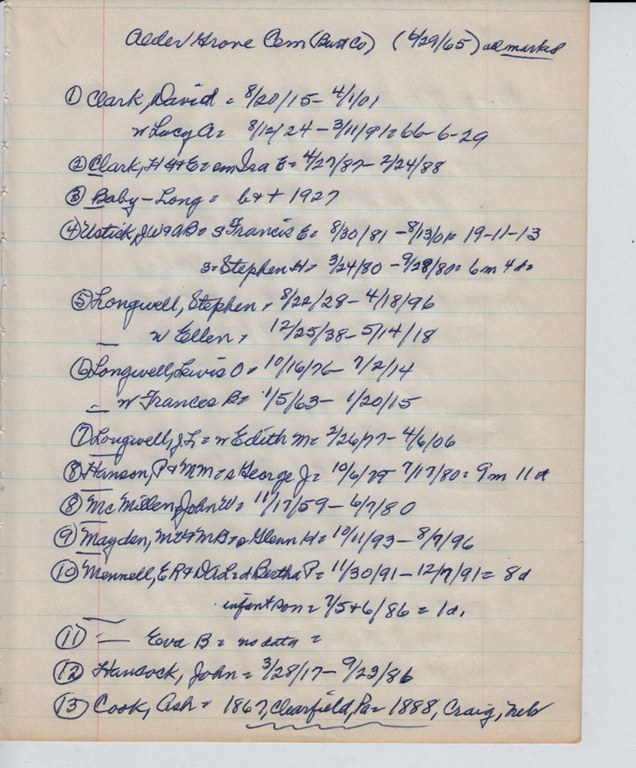 Alder Grove Cem (Burt Co) (6/29/65) all marked
① Clark, David = 8/20/15 - 4/1/01
w Lucy A = 8/12/24 - 3/11/91 = 66-6-29
② Clark, H &E = Ira E = 4/27/87 - 2/24/88
③ Baby - Long = b + t 1927
④ Ustick, JW & AB = s Francis E = 8/30/81 - 8/13/01 = 19-11-13
s = Stephen H = 3/24/80 - 9/28/80 = 6m 4d =
⑤ Longwell, Stephen = 8/22/28 - 4/18/96
w Ellen = 12/25/38 - 5/14/18
⑥ Longwell, Lewis O = 10/16/76 - 7/2/14
w Frances B = 1/5/63 - 1/20/15
⑦ Longwell, J L = w Edith M = 2/26/77 - 4/6/06
⑧ Hanson, P & MM = s George J = 10/6/79 7/17/80 = 9m 11d
⑧ McMillen, John W = 11/17/59 - 6/7/80
⑨ Mayden, M & MB = s Glenn H = 10/11/93 - 8/7/96
⑩ Mennell, ER & DAL = d Bertha P = 11/30/91 - 12/7/91 = 8d
infant son = 7/5+6/86 = 1d.
⑪ — Eva B = no data =
⑫ Hancock, John = 3/28/17 - 9/23/86
⑬ Cook, Ash = 1867, Clearfield, Pa = 1888, Craig, Neb